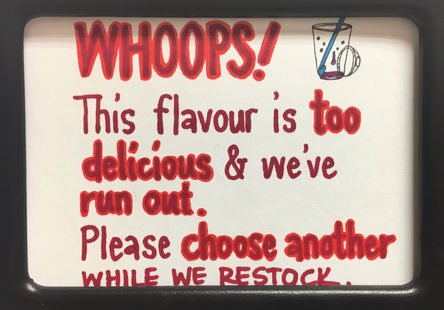 WHOOPS!
This flavour is too
delicious & we've
run out.
Please choose another
WHILE WE RESTOCK.